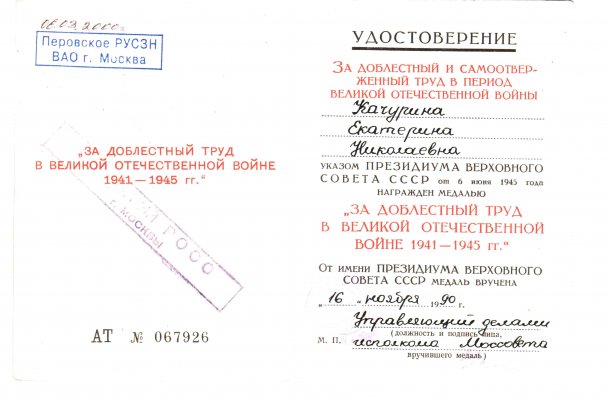 06.03.2000г
Перовское РУСЗН
ВАО г. Москва
„ЗА ДОБЛЕСТНЫЙ ТРУД
В ВЕЛИКОЙ ОТЕЧЕСТВЕННОЙ ВОЙНЕ
1941—1945 гг.“
РОСО
г. МОСКВЫ
АТ № 067926
УДОСТОВЕРЕНИЕ
ЗА ДОБЛЕСТНЫЙ И САМООТВЕР-
ЖЕННЫЙ ТРУД В ПЕРИОД
ВЕЛИКОЙ ОТЕЧЕСТВЕННОЙ ВОЙНЫ
Качурина
Екатерина
Николаевна
УКАЗОМ ПРЕЗИДИУМА ВЕРХОВНОГО
СОВЕТА СССР от 6 июня 1945 года
НАГРАЖДЕН МЕДАЛЬЮ
„ЗА ДОБЛЕСТНЫЙ ТРУД
В ВЕЛИКОЙ ОТЕЧЕСТВЕННОЙ
ВОЙНЕ 1941—1945 гг.“
От имени ПРЕЗИДИУМА ВЕРХОВНОГО
СОВЕТА СССР МЕДАЛЬ ВРУЧЕНА
„16„ ноября 1990 г.
Управляющий делами
(должность и подпись лица,
М. П. исполкома Моссовета
вручившего медаль)